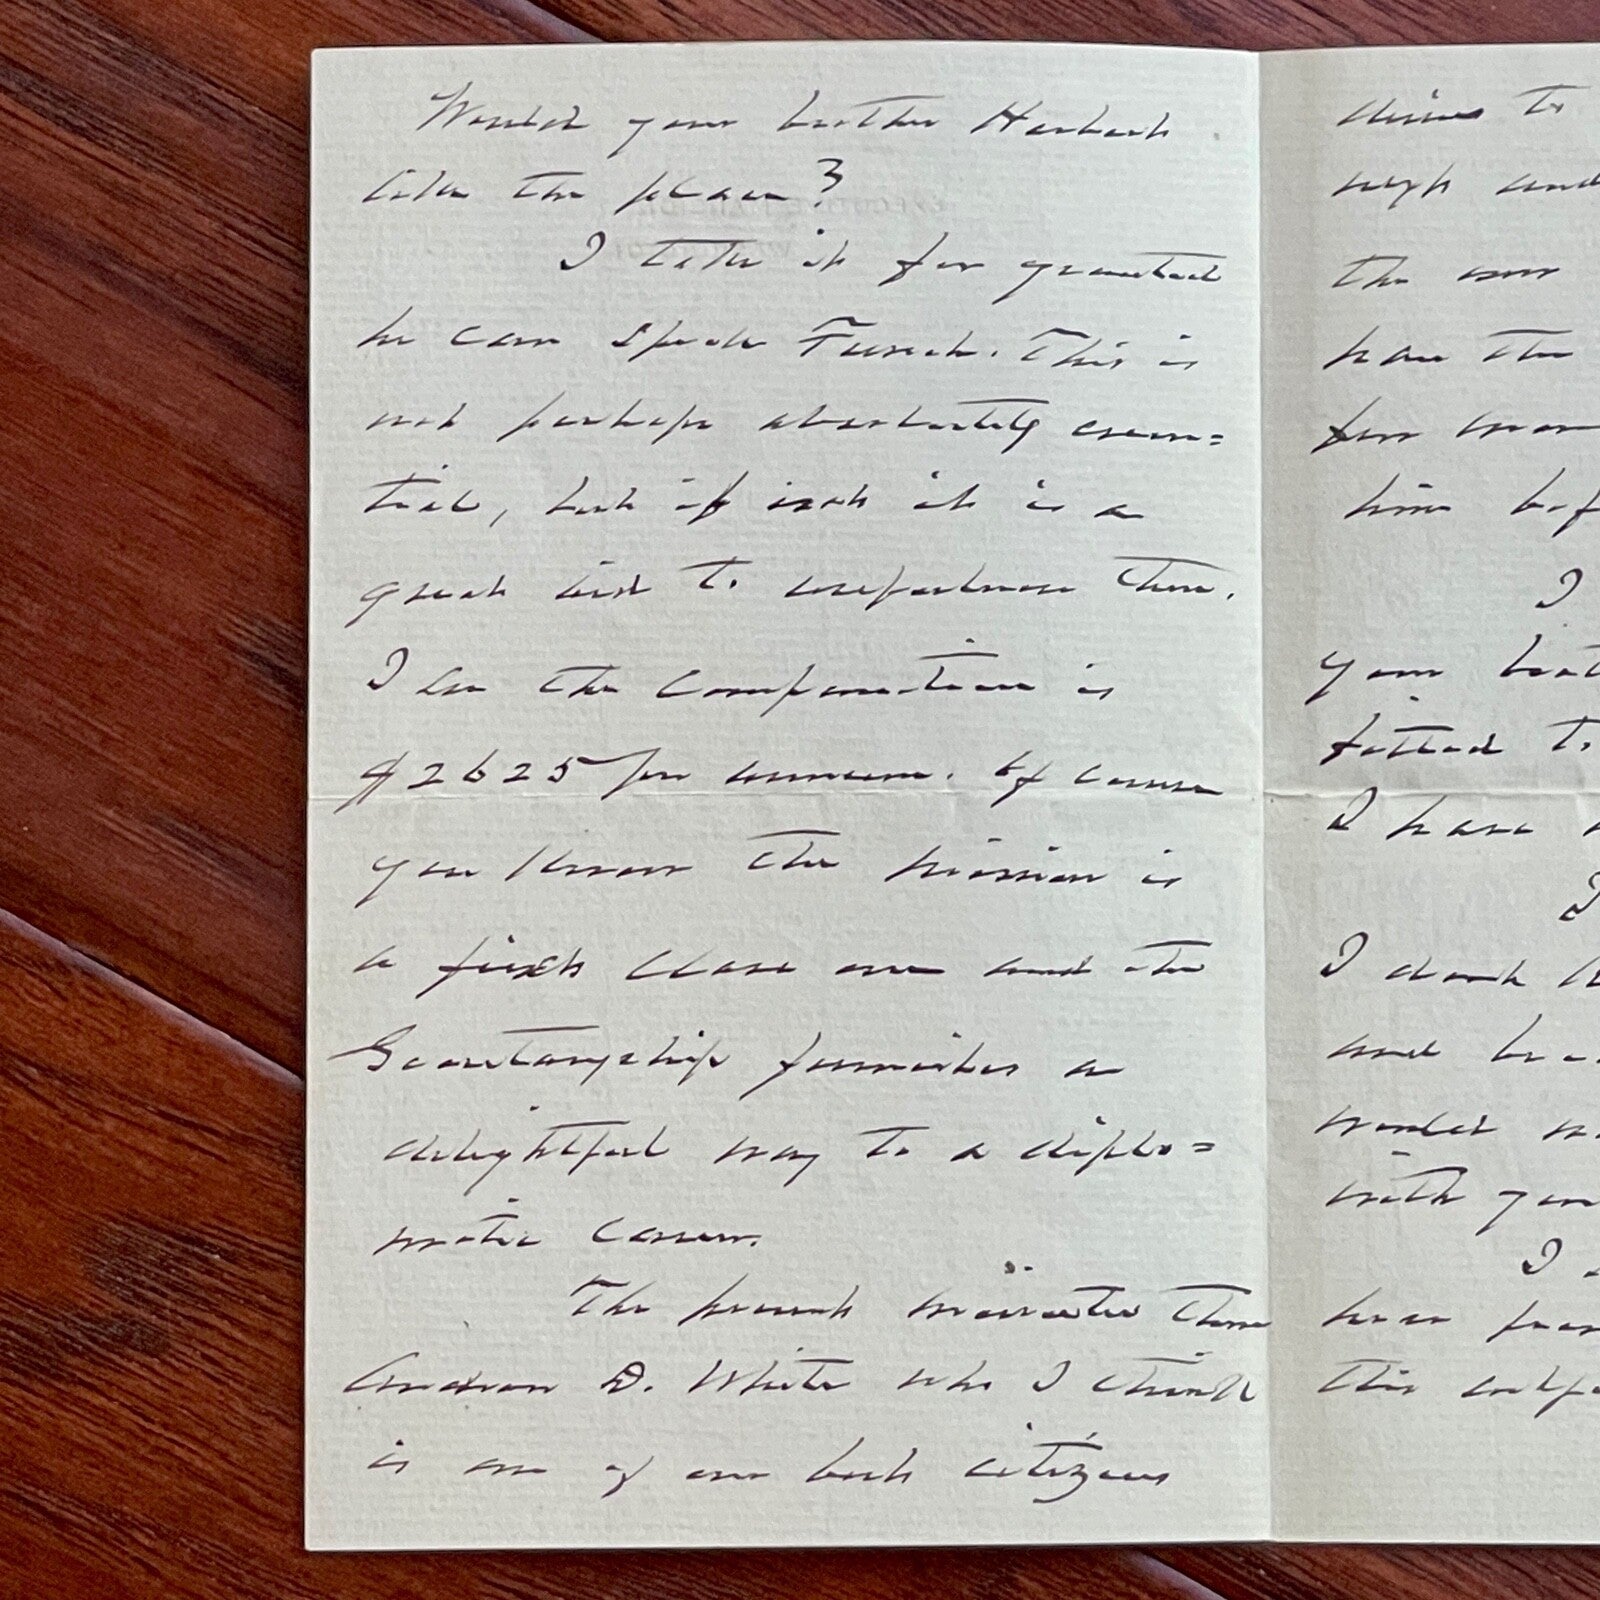 Would your brother Herbert
like the place?
I take it for granted
he can speak French. This is
not perhaps absolutely essen=
tial, but if not it is a
great aid to usefulness there.
I see the compensation is
$2625 per annum. Of course
you know the mission is
a first class one and the
Secretaryship furnishes a
delightful way to a diplo=
matic career.
The present minister there
Andrew D. White who I think
is one of our best citizens
to
and
the
have the
for
him bef
I
your brot
fitted to
I have
I
I don't
and
would
with you
I
hear from
this subje